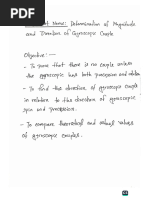 Experiment Name: Determination of Magnitude
and Direction of Gyroscopic Couple
Objective: —
- To prove that there is no couple unless
the gyroscopic has both precession and rotation
- To find the direction of gyroscopic couple
in relation to the direction of gyroscopic
spin and precession.
- To compare theoretical and actual values
of gyroscopic couples.